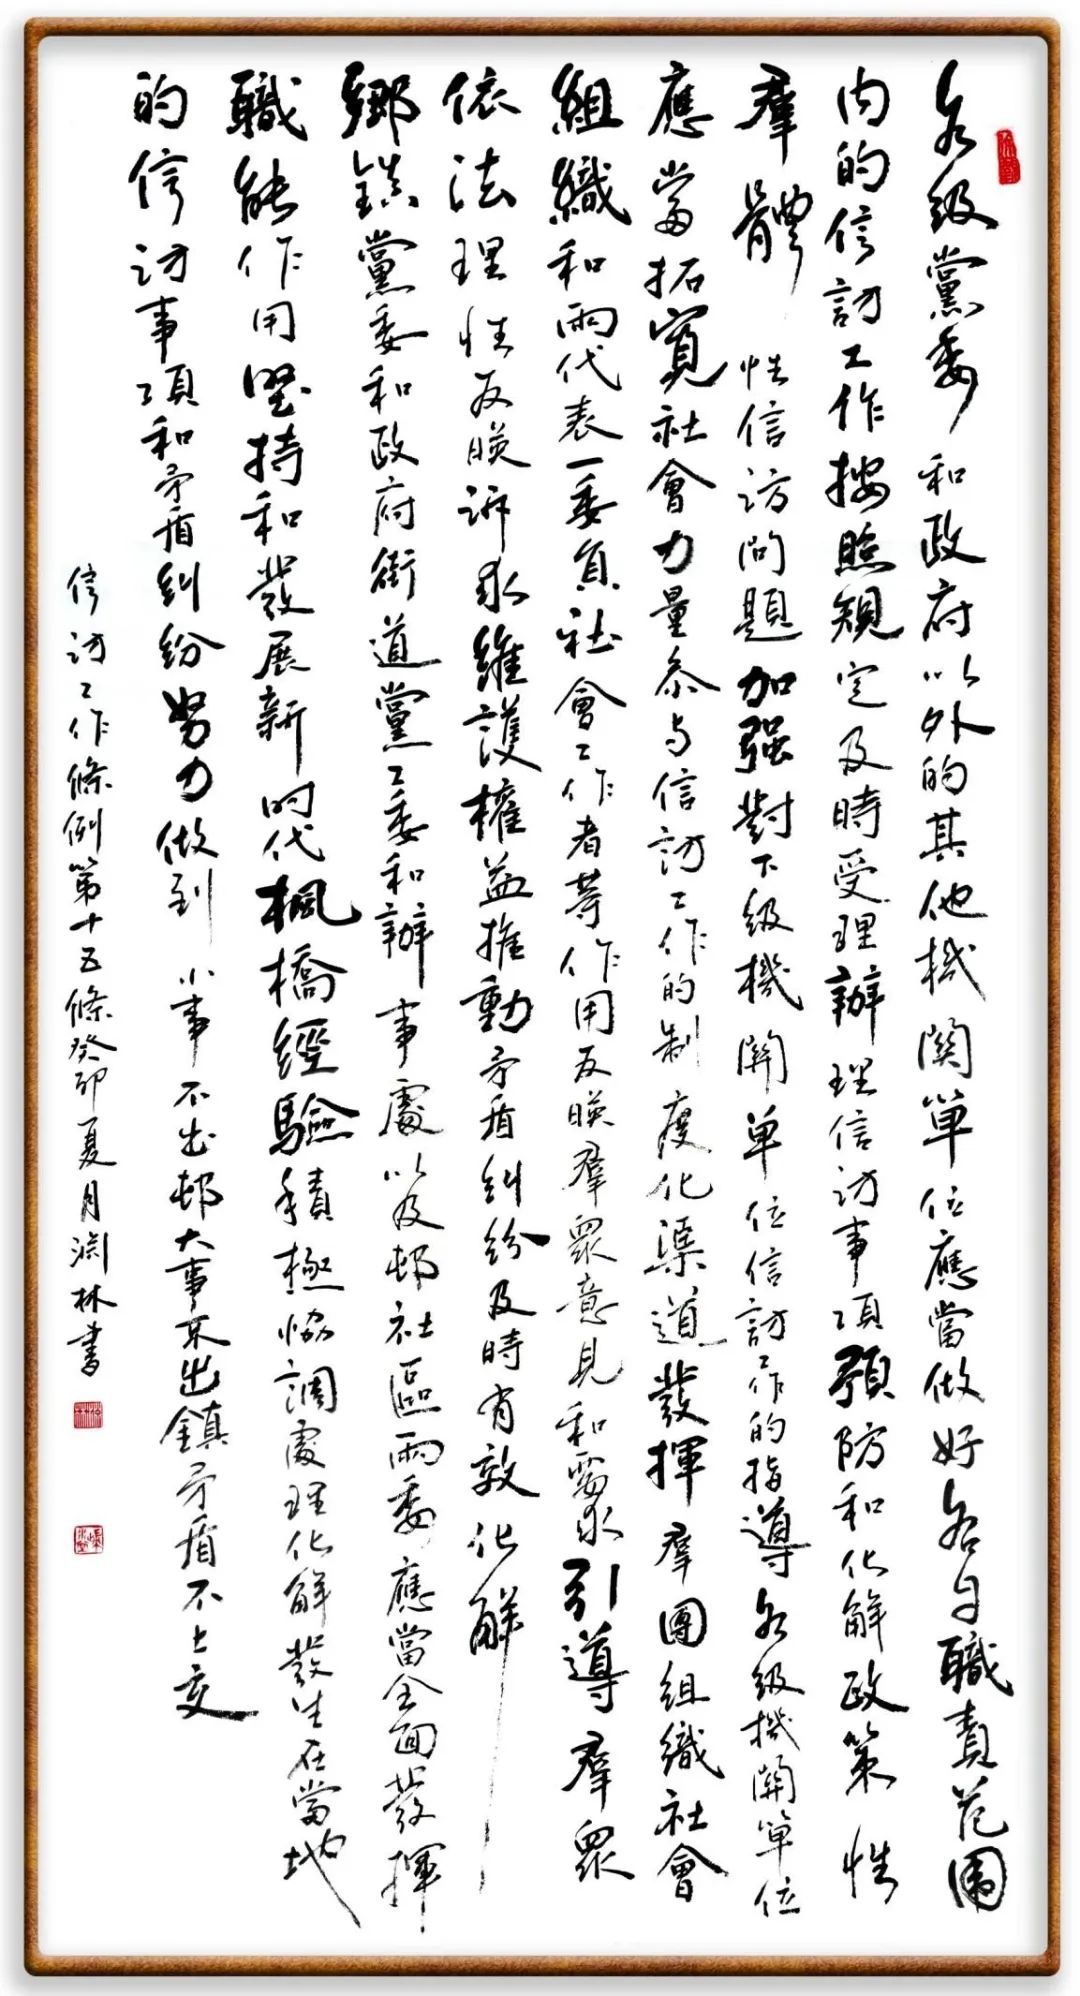 各级黨委和政府以外的其他机関单位應當做好各自職責范围
内的信訪工作按照规定及時受理辦理信访事项預防和化解政策性
羣體性信访问題加强對下级機関单位信訪工作的指導各级機関单位
應當拓寬社會力量参与信訪工作的制度化渠道發揮羣團组織社會
組織和兩代表一委員社會工作者等作用反映羣眾意見和要求引導羣眾
依法理性反映訴求維護權益推動矛盾糾纷及時有效化解
鄉鎮黨委和政府街道黨工委和辦事處以及邨社區兩委應當全面發揮
職能作用坚持和發展新时代楓橋經驗積極协調處理化解發生在當地
的信访事项和矛盾糾纷努力做到小事不出邨大事不出鎮矛盾不上交
信访工作條例第十五條癸卯夏月渊林書